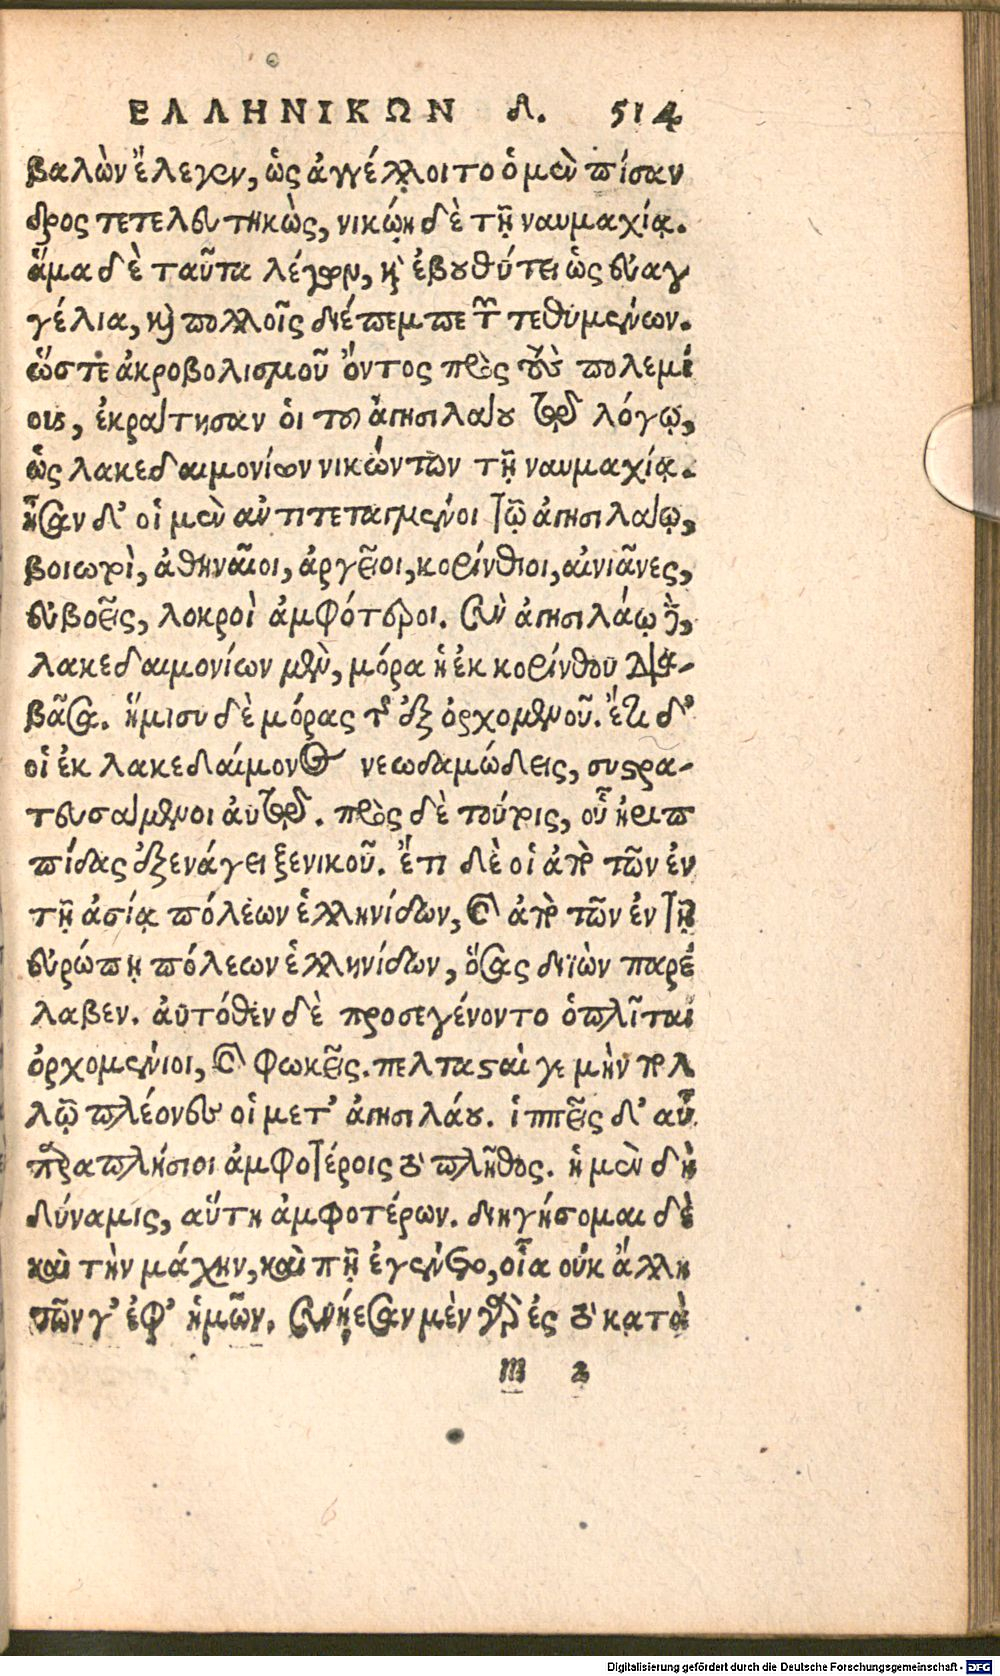 ΕΛΛΗΝΙΚΩΝ δ. 514
βαλὼν ἔλεγεν, ὡς ἀγγέλλοιτο ὁ μὲν πίσαν
δρος τετελευτηκὼς, νικῴη δὲ τῇ ναυμαχίᾳ.
ἅμα δὲ ταῦτα λέγων, καὶ ἐβουθύτει ὡς εὐαγ
γέλια, καὶ πολλοῖς διέπεμπε τῶν τεθυμένων.
ὥστε ἀκροβολισμοῦ ὄντος πρὸς τοὺς πολεμί
ους, ἐκράτησαν οἱ τοῦ ἀγησιλάου τῷ λόγῳ,
ὡς λακεδαιμονίων νικώντων τῇ ναυμαχίᾳ.
ἦσαν δ’ οἱ μὲν ἀντιτεταγμένοι τῷ ἀγησιλάῳ,
βοιωτοὶ, ἀθηναῖοι, ἀργεῖοι, κορίνθιοι, αἰνιᾶνες,
εὐβοεῖς, λοκροὶ ἀμφότεροι. σὺν ἀγησιλάῳ δὲ,
λακεδαιμονίων μὲν, μόρα ἡ ἐκ κορίνθου δια-
βᾶσα. ἥμισυ δὲ μόρας τῆς ἐξ ὀρχομενοῦ. ἔτι δ’
οἱ ἐκ λακεδαίμονος νεωδαμώδεις, συστρα-
τευσάμενοι αὐτῷ. πρὸς δὲ τούτοις, οὗ ἡριπ
πίδας ἐξενάγει ξενικοῦ. ἔτι δὲ οἱ ἀπὸ τῶν ἐν
τῇ ἀσίᾳ πόλεων ἑλληνίδων, καὶ ἀπὸ τῶν ἐν τῇ
εὐρώπῃ πόλεων ἑλληνίδων, ὅσας διϊὼν παρέ
λαβεν. αὐτόθεν δὲ προσεγένοντο ὁπλῖται
ὀρχομένιοι, καὶ φωκεῖς. πελτασταί γε μὴν πολ
λῷ πλέονες οἱ μετ’ ἀγησιλάου. ἱππεῖς δ’ αὖ
παραπλήσιοι ἀμφοτέροις τὸ πλῆθος. ἡ μὲν δὴ
δύναμις, αὕτη ἀμφοτέρων. διηγήσομαι δὲ
καὶ τὴν μάχην, καὶ πῇ ἐγένετο, οἵα οὐκ ἄλλη
τῶν γ’ ἐφ’ ἡμῶν. συνῄεσαν μὲν γὰρ ἐς τὸ κατὰ
m 2
Digitalisierung gefördert durch die Deutsche Forschungsgemeinschaft - DFG